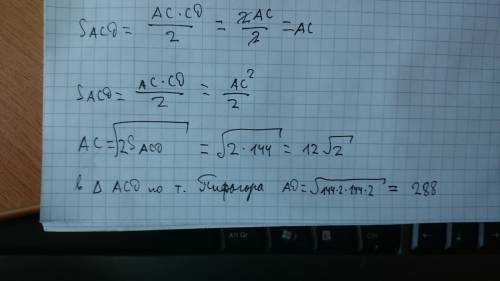 S_ACD = AC·CD/2 = 2AC/2 = AC
S_ACD = AC·CD/2 = AC²/2
AC = √2S_ACD = √2·144 = 12√2
в Δ ACD по т. Пифагора AD = √144·2·144·2 = 288
Alt Gr